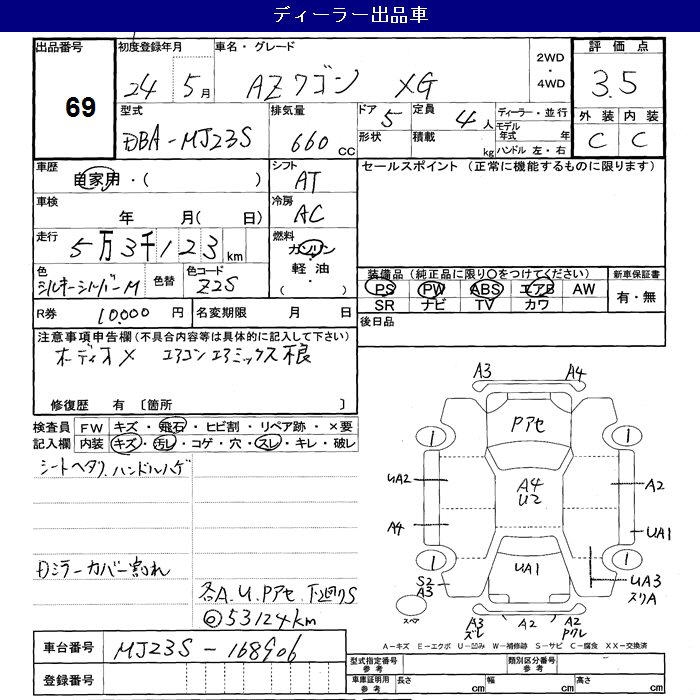 ディーラー出品車
出品番号 69
初度登録年月 24 5月
車名・グレード AZワゴン XG
2WD・4WD
評価点 3.5
外装 内装
C C
型式 DBA-MJ23S
排気量 660 cc
ドア 5 定員 4人
形状 積載 kg
ディーラー・並行
モデル年式 年
ハンドル 左・右
車歴 自家用・( )
シフト AT
セールスポイント (正常に機能するものに限ります)
車検 年 月( 日)
冷房 AC
走行 5万3千123 km
燃料 ガソリン
軽油
( ・ )
色 シルキーシルバーM 色替 色コード Z2S
装備品 (純正品に限り○をつけてください) 新車保証書
PS PW ABS エアB AW 有・無
SR ナビ TV カワ
R券 10,000 円 名変期限 月 日
後日品
注意事項申告欄 (不具合内容等は具体的に記入して下さい)
オーディオ× エアコンエアミックス不良
修復歴 有 〔箇所 〕
検査員 FW キズ・飛石・ヒビ割・リペア跡・×要
記入欄 内装 キズ・汚レ・コゲ・穴・スレ・キレ・破レ
シートヘタリ、ハンドルハゲ
Dミラーカバー割れ
各A.U.Pアセ.下廻りS
◎53124km
A3 A4
Pアセ
1 1
UA2 A4 U2 A2
A4 UA1
1 UA1 1
S2 A3 UA3 スリA
スペア A3 ズレ A2 A2 Pワレ
A-キズ E-エクボ U-凹み W-補修跡 S-サビ C-腐食 XX-交換済
車台番号 MJ23S-168906
登録番号
型式指定番号 参考 類別区分番号 参考
車庫証明用 参考 長さ cm 幅 cm 高さ cm